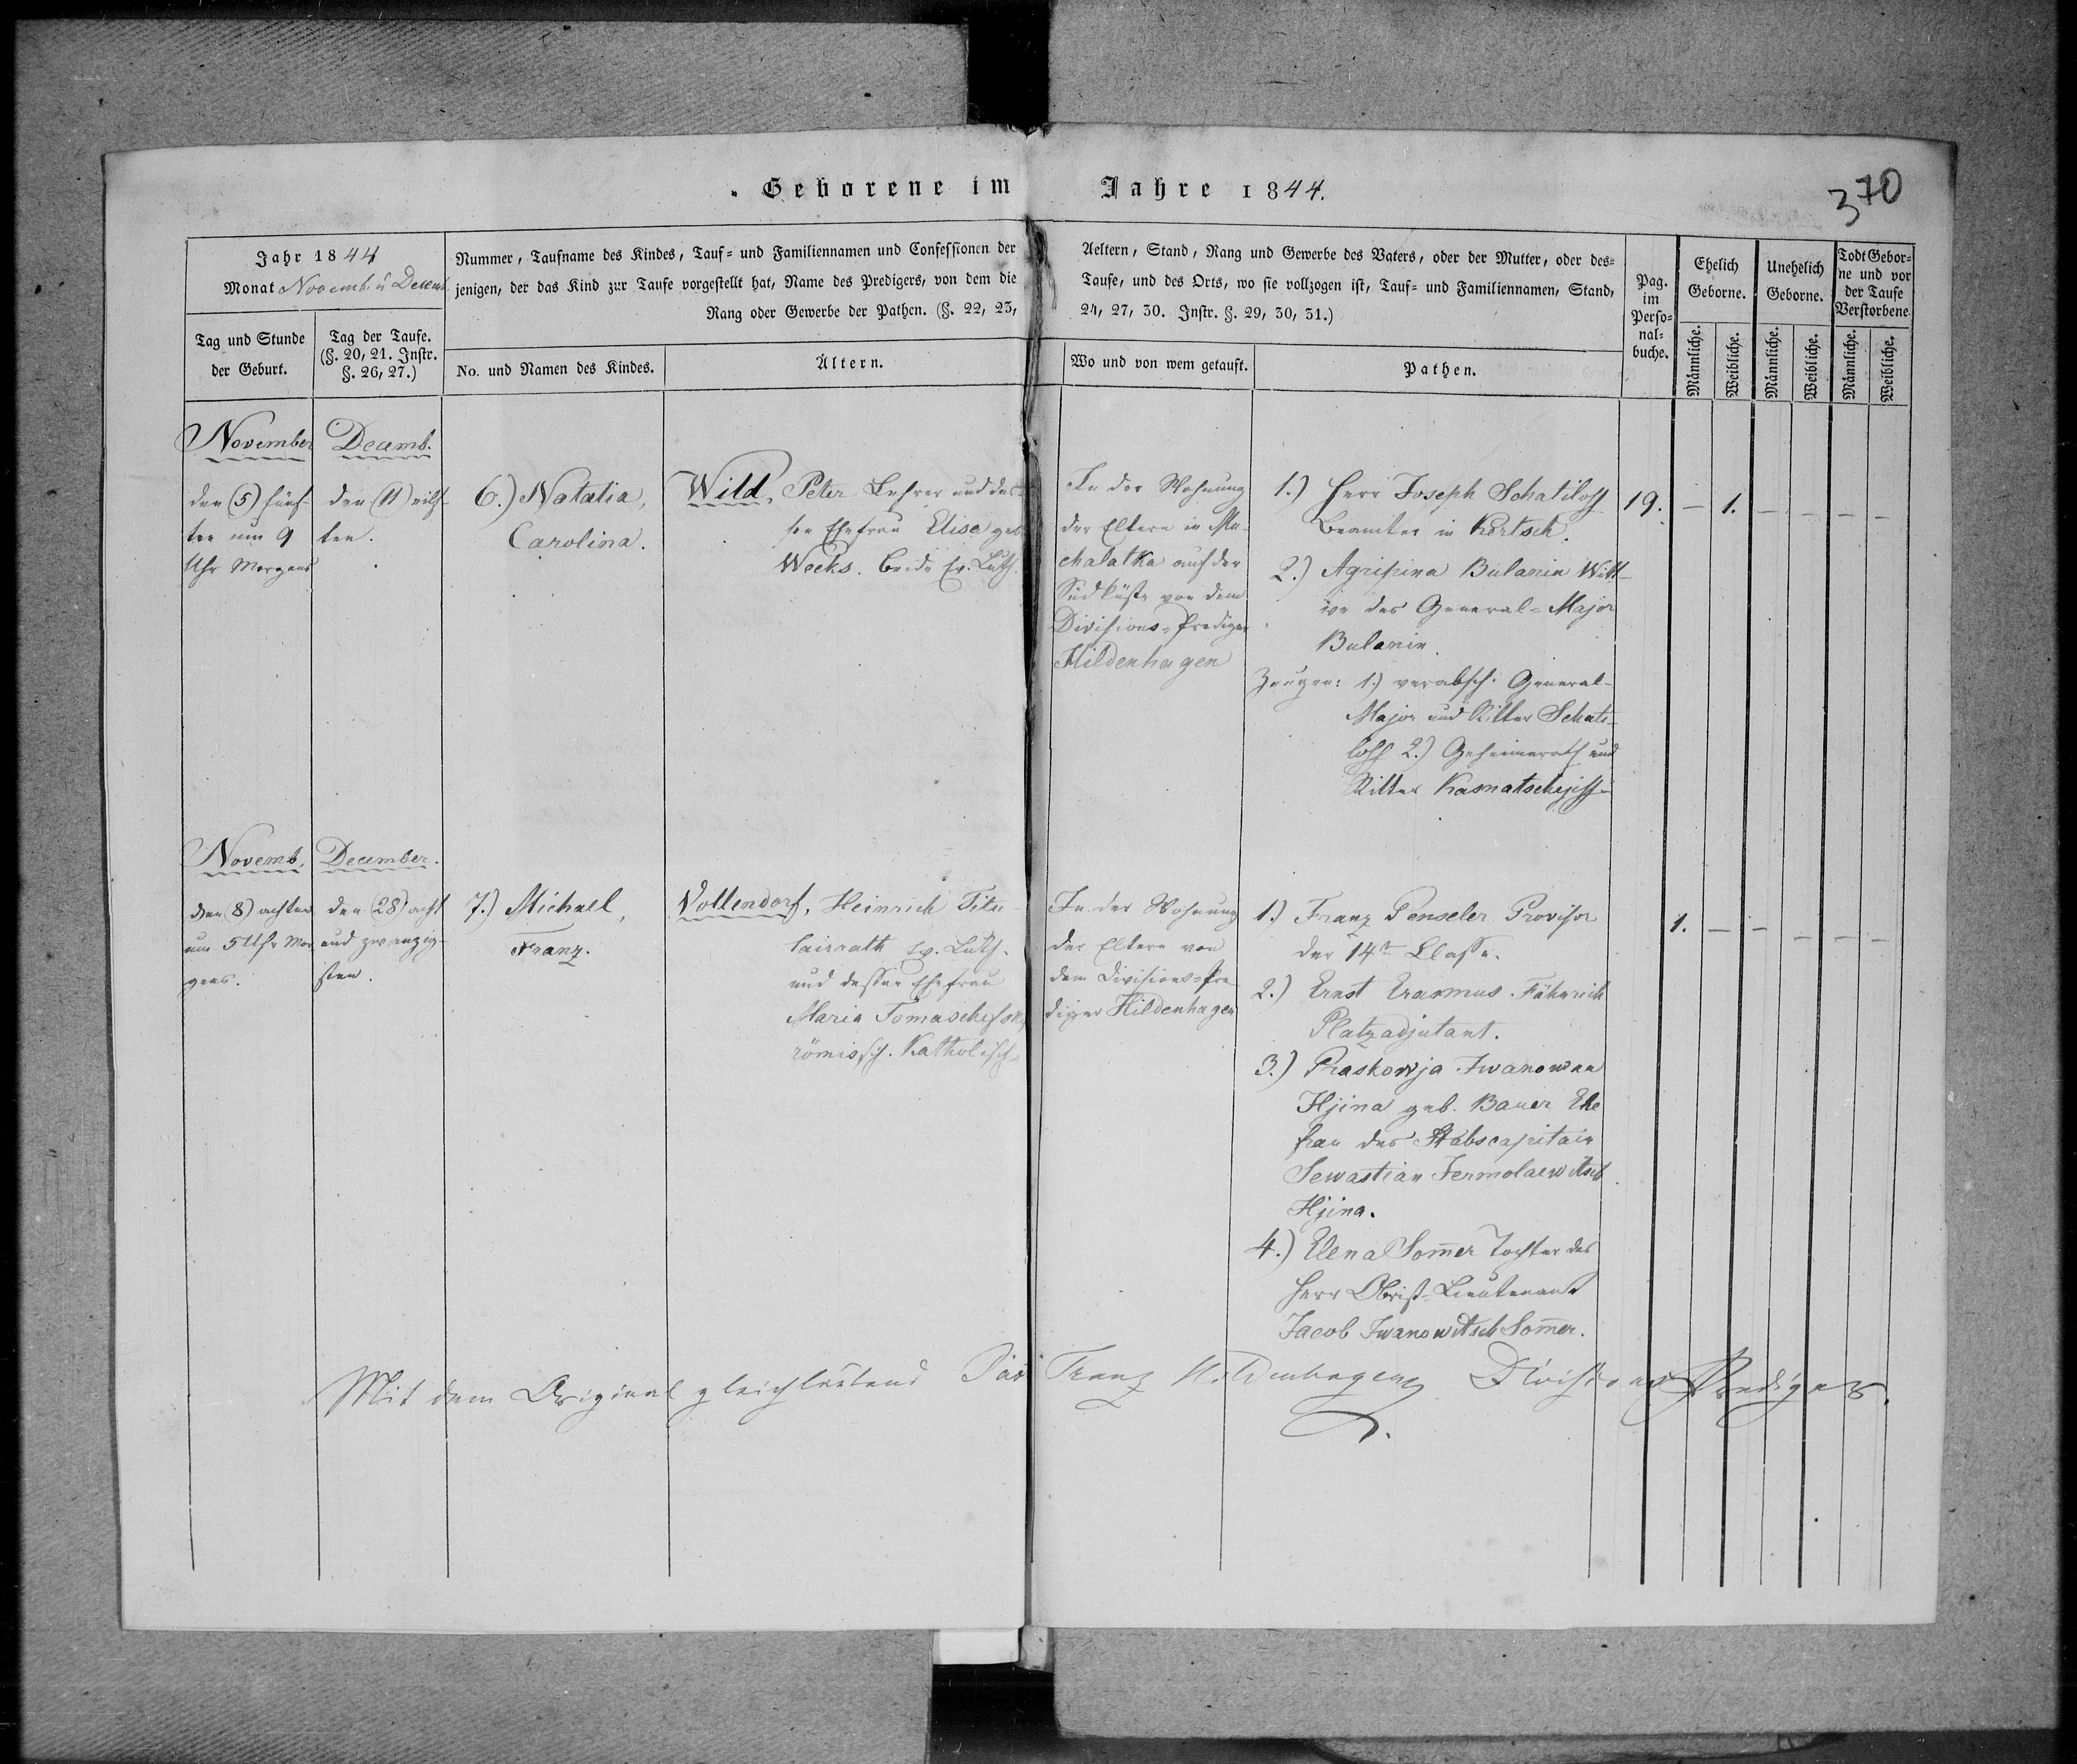 Geborene im Jahre 1844.
370
Jahr 1844
Monat Novemb. u Decemb
Tag und Stunde
der Geburt.
Tag der Taufe.
(§. 20, 21. Instr.
§. 26, 27.)
Nummer, Taufname des Kindes, Tauf- und Familiennamen und Confessionen der
jenigen, der das Kind zur Taufe vorgestellt hat, Name des Predigers, von dem die
Rang oder Gewerbe der Pathen. (§. 22, 23,
No. und Namen des Kindes.
Ältern.
Aeltern, Stand, Rang und Gewerbe des Vaters, oder der Mutter, oder des-
Taufe, und des Orts, wo sie vollzogen ist, Tauf- und Familiennamen, Stand,
24, 27, 30. Instr. §. 29, 30, 31.)
Wo und von wem getauft.
Pathen.
Pag.
im
Perso-
nal-
buche.
Ehelich
Geborne.
Unehelich
Geborne.
Todt Gebor-
ne und vor
der Taufe
Verstorbene
Männliche.
Weibliche.
Männliche.
Weibliche.
Männliche.
Weibliche.
November
den (5) fünf-
ten um 9
Uhr Morgens
Decemb.
den (11) eilf-
ten.
6.) Natalia,
Carolina.
Wild, Peter Lehrer und des-
sen Ehefrau Elisa geb
Weeks. beide Ev. Luth.
In der Wohnung
der Eltern in Mu-
chalatka auf der
Südküste von dem
Divisions-Prediger
Hildenhagen
1.) Herr Joseph Schatiloff
Beamter in Kertsch.
2.) Agripina Bulanin Witt-
we des General-Major
Bulanin.
Zeugen: 1.) verabsch. General-
Major und Ritter Schati-
loff 2.) Geheimerath und
Ritter Kasnatschejeff
19. — 1. — — — —
Novemb.
den (8) achten
um 5 Uhr Mor
gens.
December.
den (28) acht
und zwanzig-
sten.
7.) Michael,
Franz.
Vollendorf, Heinrich Titu-
lairrath Ev. Luth.
und dessen Ehefrau
Maria Tomaschefsky
römisch. Katholisch
In der Wohnung
der Eltern von
dem Divisions-Pre
diger Hildenhagen
1.) Franz Penseler Provisor
der 14ten Classe.
2.) Ernst Erasmus Fähnrich
Platzadjutant.
3.) Praskowja Iwanowna
Iljina geb. Bauer Ehe
frau des Stabscapitain
Sewastian Jermolaewitsch
Iljina.
4.) Elena Som̄er Tochter des
Herr Obrist-Lieutenant
Jacob Iwanowitsch Som̄er.
1. — — — — —
Mit dem Original gleichlautend Pas Franz Hildenhagen Divisions Prediger.